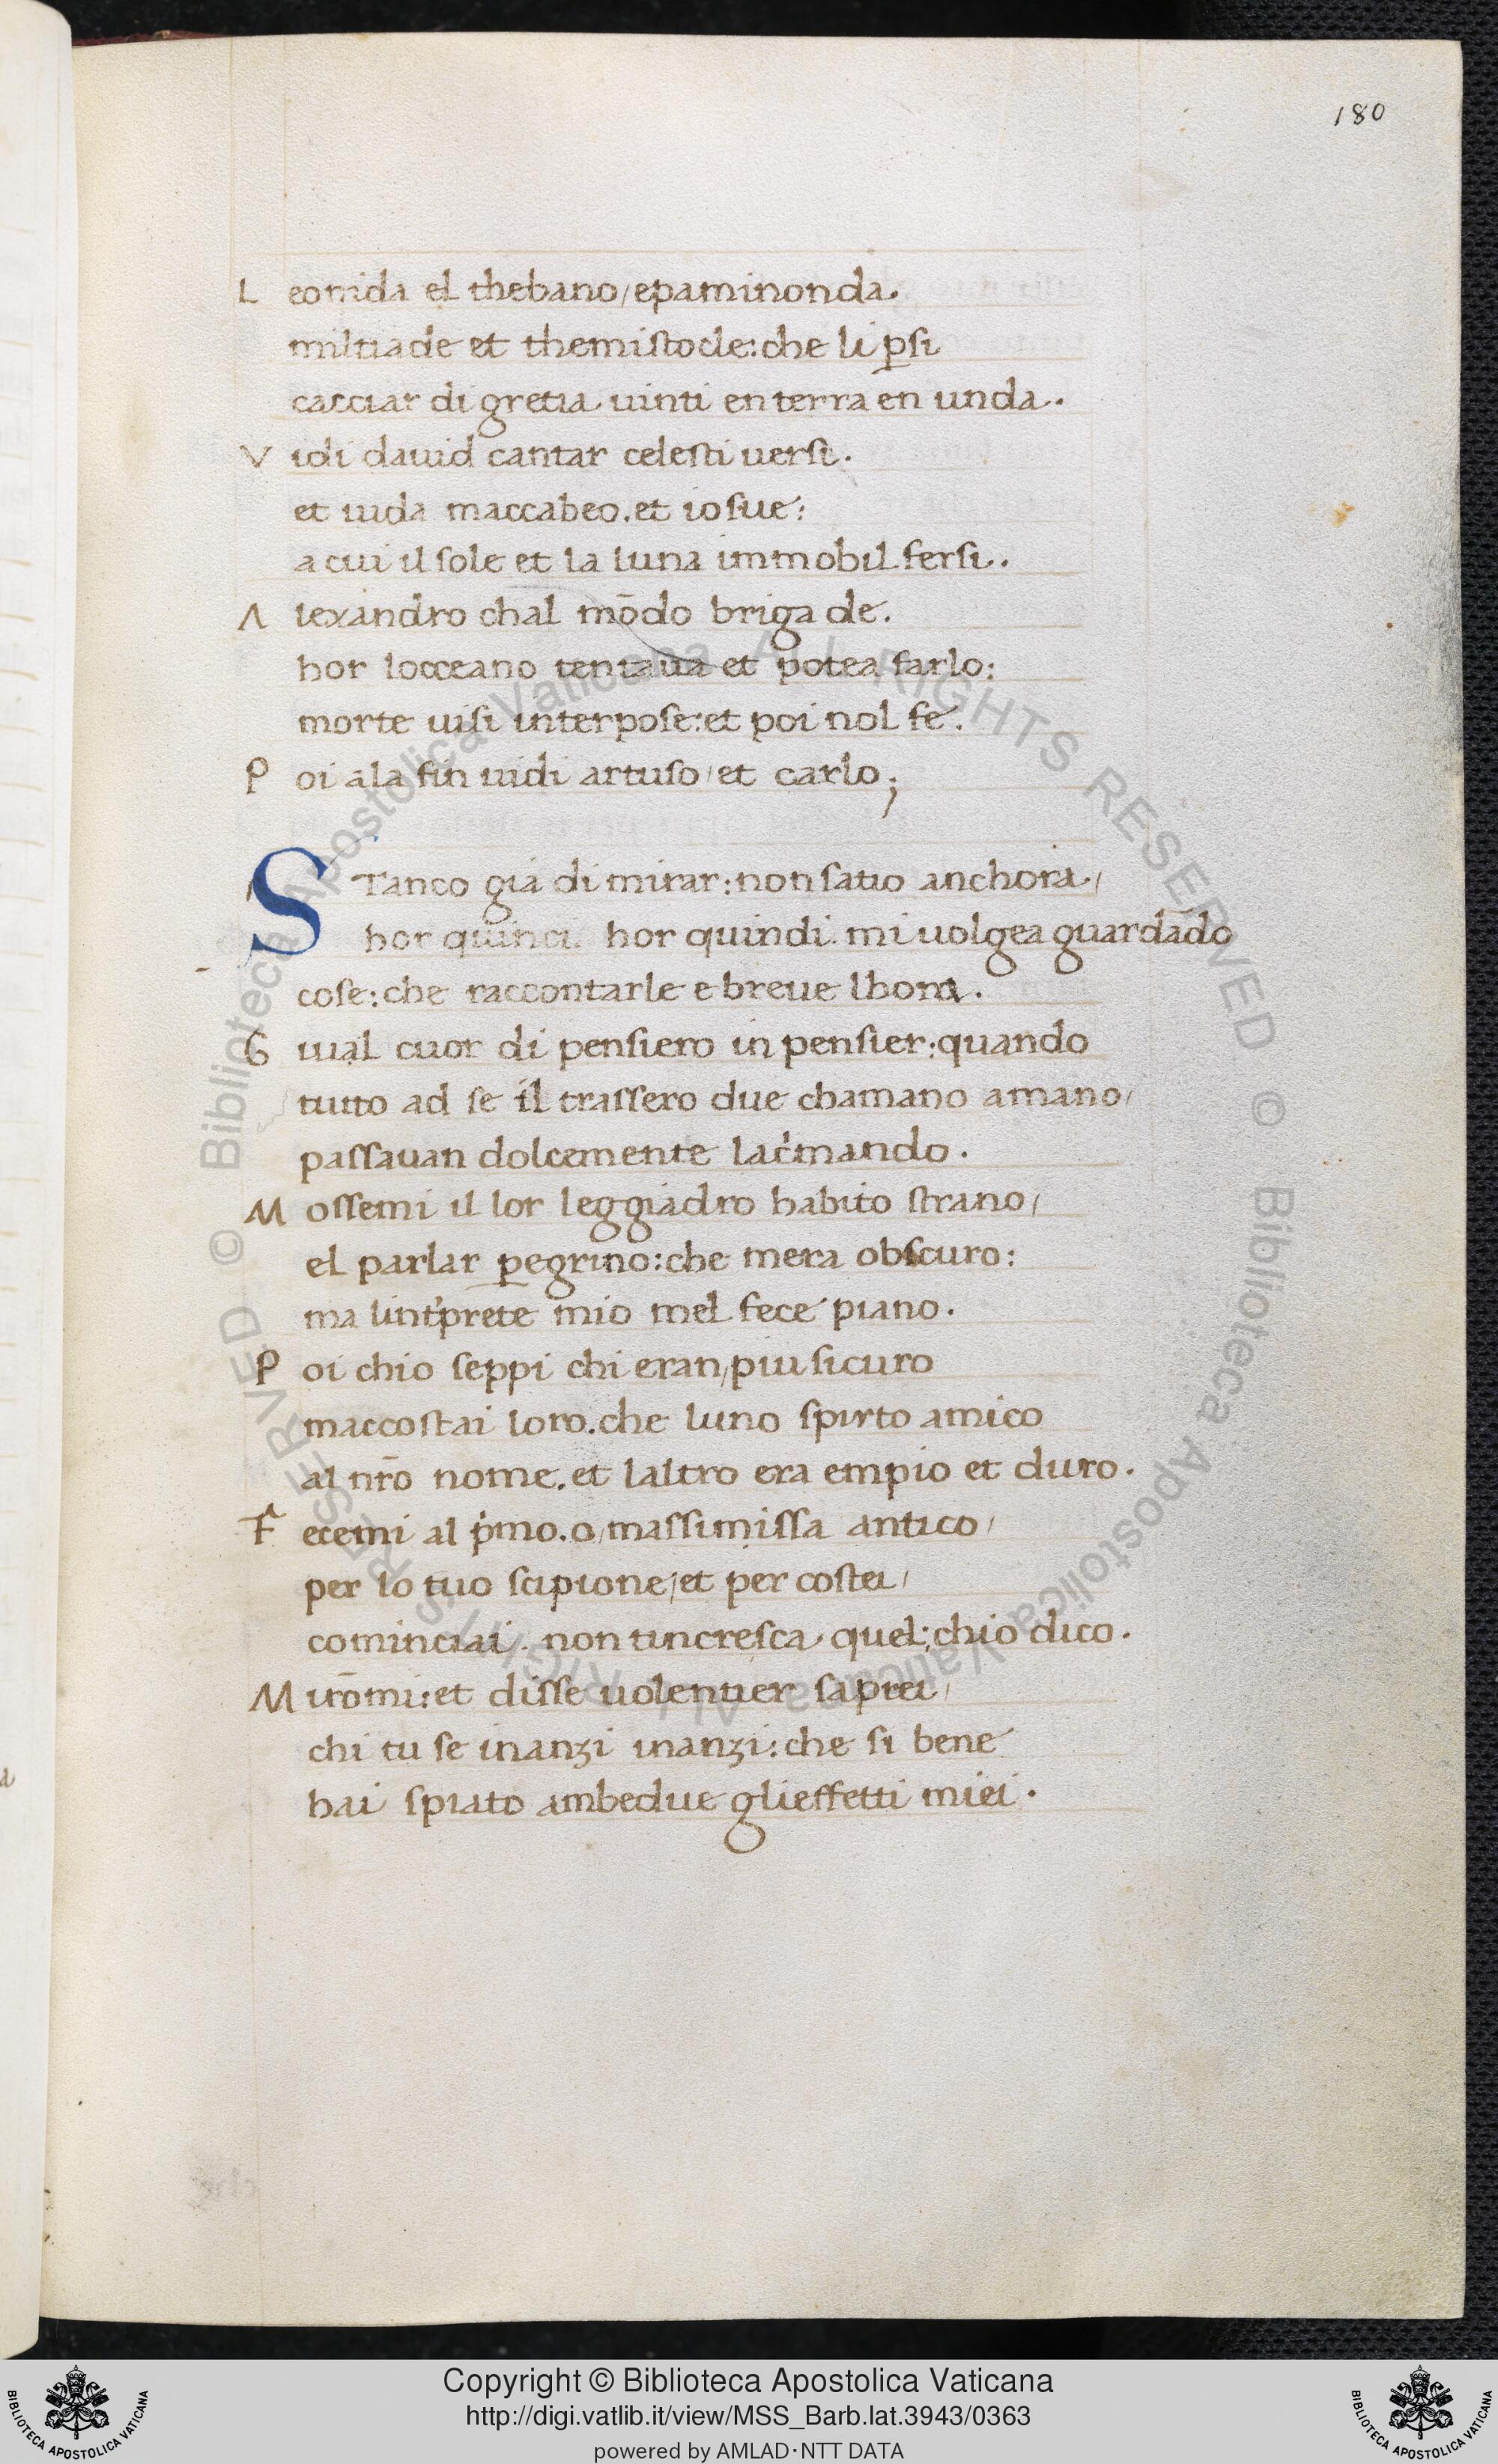 180
L eonida el thebano/epaminonda.
miltiade et themiſtocle: che li p̱ſi
cacciar di gretia uinti en terra en unda.
V idi dauid cantar celeſti uerſi.
et iuda maccabeo. et ioſue:
a cui il ſole et la luna immobil ferſi.
A lexandro chal mōdo briga de.
hor locceano tentaua et potea farlo:
morte uiſi interpoſe: et poi nol fe.
P oi a la fin uidi artuſo/et carlo;
S Tanco già di mirar: non ſatio anchora/
hor quinci. hor quindi. mi uolgea guardādo
coſe: che raccontarle e breue lhora.
G iual cuor di penſiero in penſier: quando
tutto ad ſe il traſſero due chamano amano/
paſſauan dolcemente lac'mando.
M oſſemi il lor leggiadro habito ſtrano/
el parlar p̱egrino: che mera obſcuro:
ma lint'prete mio mel fece piano.
P oi chio ſeppi chi eran/piu ſicuro
maccoſtai loro. che luno ſpirto amico
al nr̄o nome. et laltro era empio et duro.
F ecemi al p'mo. o/maſſiniſſa antico/
per lo tuo ſcipione/et per coſtei/
cominciai. non tincreſca quel: chio dico.
M irōmi: et diſſe uolentier ſaprei/
chi tu ſe inanzi inanzi: che ſi bene
hai ſpiato ambedue glieffetti miei.
Copyright © Biblioteca Apostolica Vaticana
http://digi.vatlib.it/view/MSS_Barb.lat.3943/0363
powered by AMLAD·NTT DATA